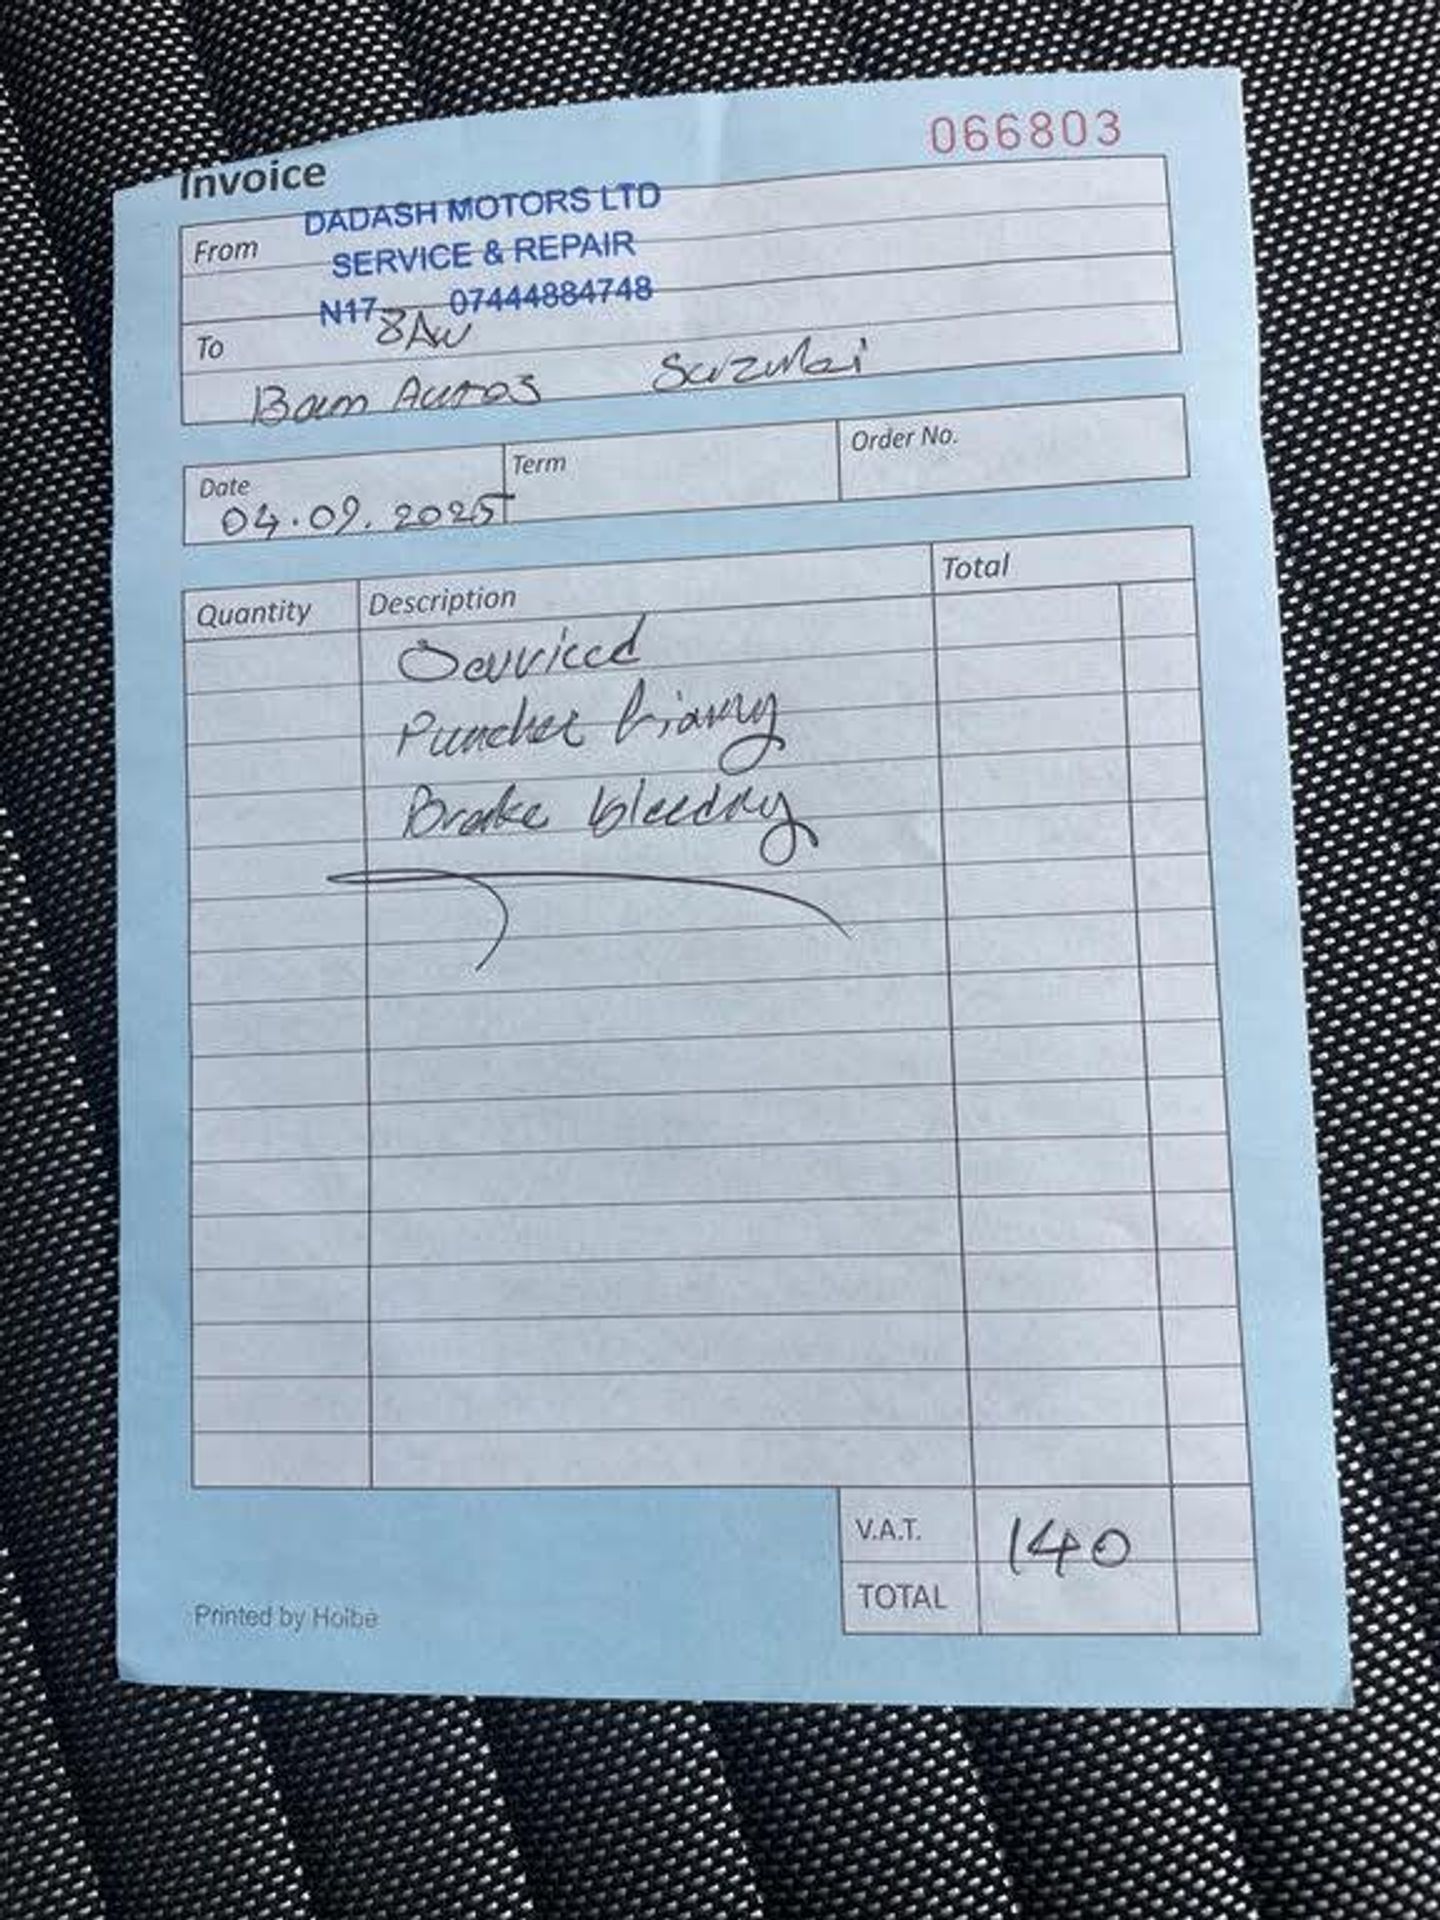 066803
Invoice
From
DADASH MOTORS LTD
SERVICE & REPAIR
N17 07444884748
8AW
To
Bam Autos Suzuki
Date
04.09.2025
Term
Order No.
Quantity Description Total
Serviced
Puncher
Brake bleeding
V.A.T. 140
TOTAL
Printed by Holbe